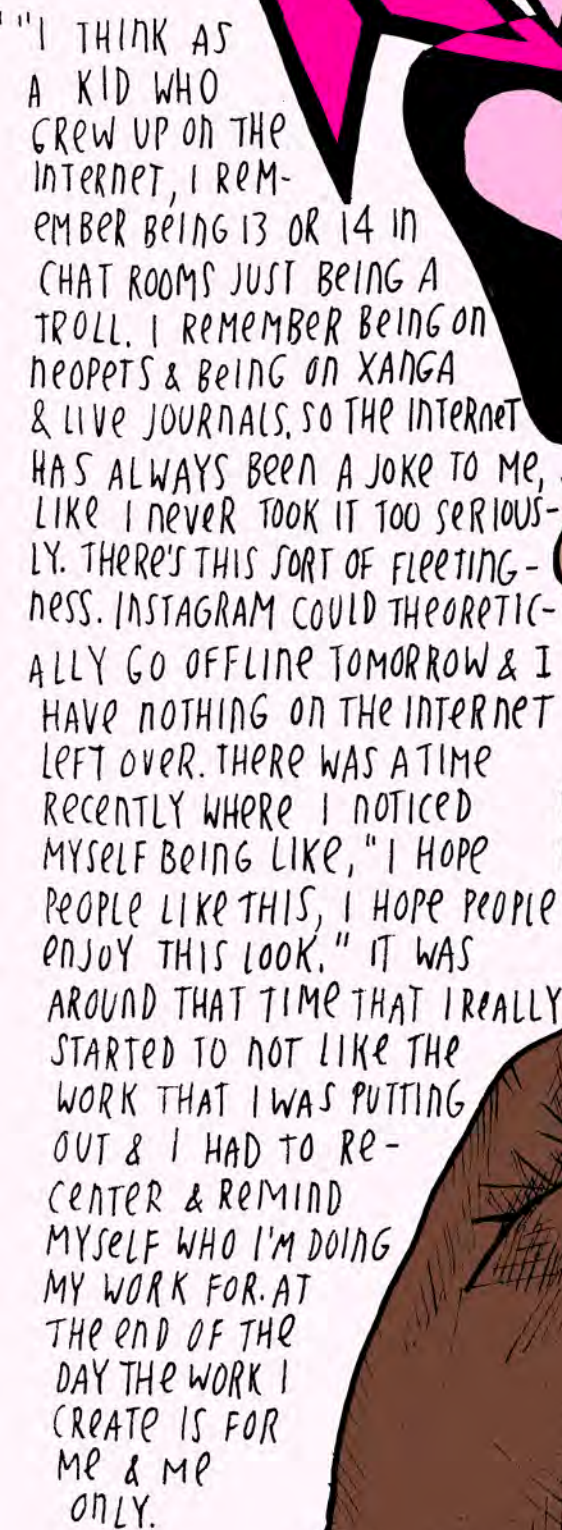 ""I THINK AS
A KID WHO
GREW UP ON THE
INTERNET, I REM-
EMBER BEING 13 OR 14 IN
CHAT ROOMS JUST BEING A
TROLL. I REMEMBER BEING ON
NEOPETS & BEING ON XANGA
& LIVE JOURNALS, SO THE INTERNET
HAS ALWAYS BEEN A JOKE TO ME,
LIKE I NEVER TOOK IT TOO SERIOUS-
LY. THERE'S THIS SORT OF FLEETING-
NESS. INSTAGRAM COULD THEORETIC-
ALLY GO OFFLINE TOMORROW & I
HAVE NOTHING ON THE INTERNET
LEFT OVER. THERE WAS A TIME
RECENTLY WHERE I NOTICED
MYSELF BEING LIKE, "I HOPE
PEOPLE LIKE THIS, I HOPE PEOPLE
ENJOY THIS LOOK." IT WAS
AROUND THAT TIME THAT I REALLY
STARTED TO NOT LIKE THE
WORK THAT I WAS PUTTING
OUT & I HAD TO RE-
CENTER & REMIND
MYSELF WHO I'M DOING
MY WORK FOR. AT
THE END OF THE
DAY THE WORK I
CREATE IS FOR
ME & ME
ONLY.